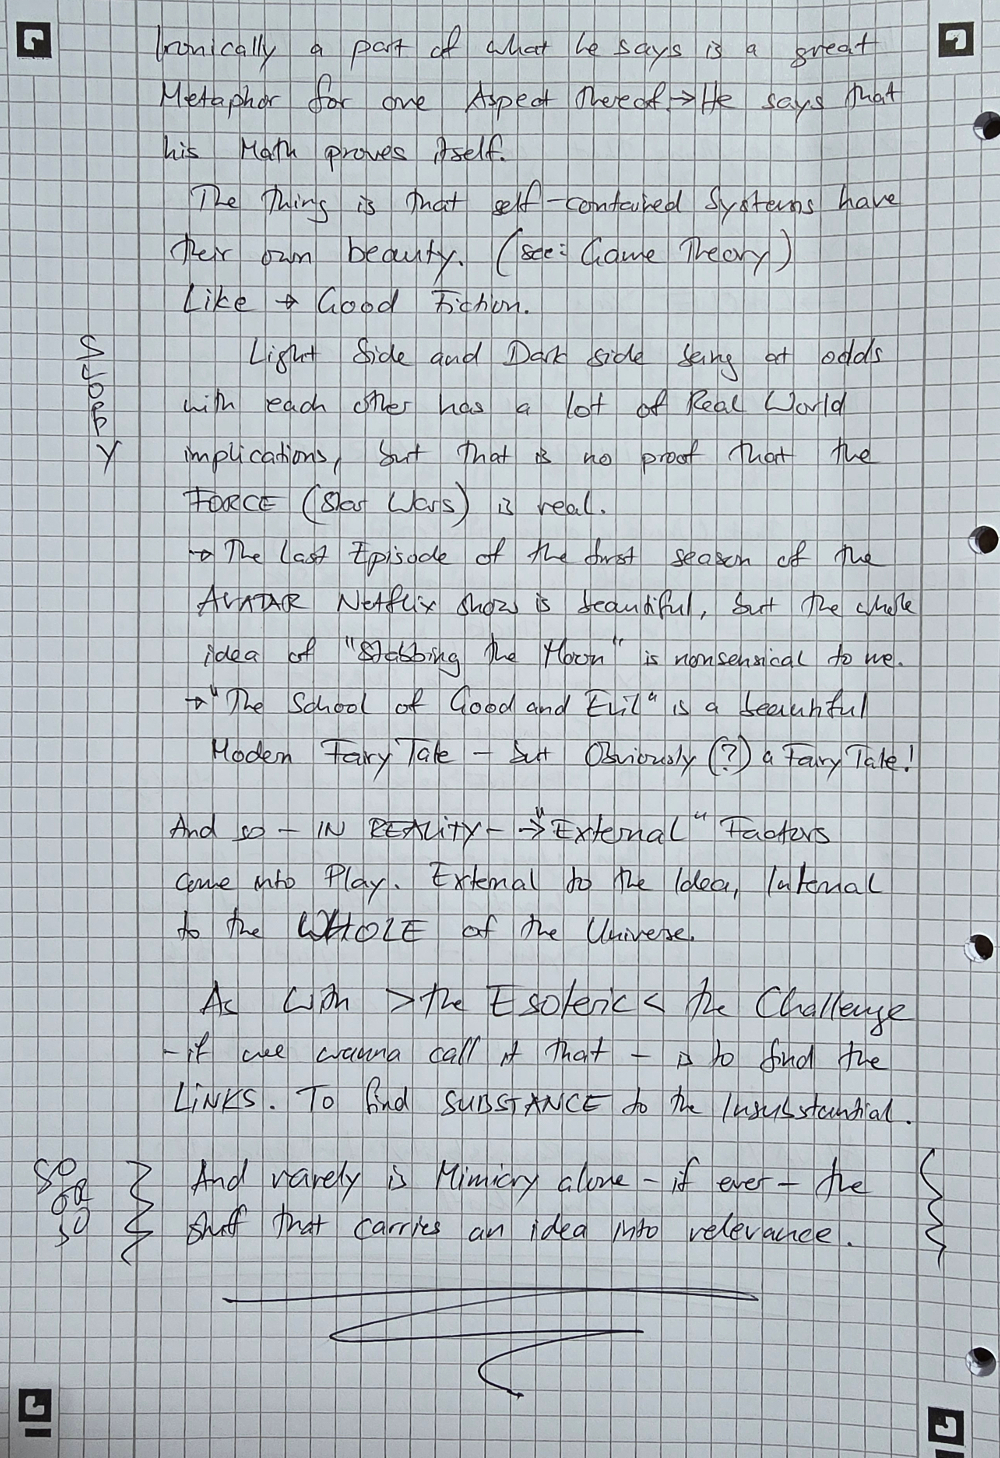 Ironically a part of what he says is a great
Metaphor for one Aspect thereof → He says that
his Math proves itself.
The thing is that self-contained Systems have
their own beauty. (see: Game Theory)
Like → Good Fiction.
SLOPPY
Light Side and Dark side being at odds
with each other has a lot of Real World
implications, but that is no proof that the
FORCE (Star Wars) is real.
→ The last Episode of the first season of the
AVATAR Netflix show is beautiful, but the whole
idea of "Stabbing the Moon" is nonsensical to me.
→ "The School of Good and Evil" is a beautiful
Modern Fairy Tale - but Obviously (?) a Fairy Tale!
And so - IN REALITY - → "External" Factors
come into Play. External to the Idea, Internal
to the WHOLE of the Universe.
As with >the Esoteric< the Challenge
- if we wanna call it that - is to find the
LINKS. To find SUBSTANCE to the Insubstantial.
And rarely is Mimicry alone - if ever - the
stuff that carries an idea into relevance.